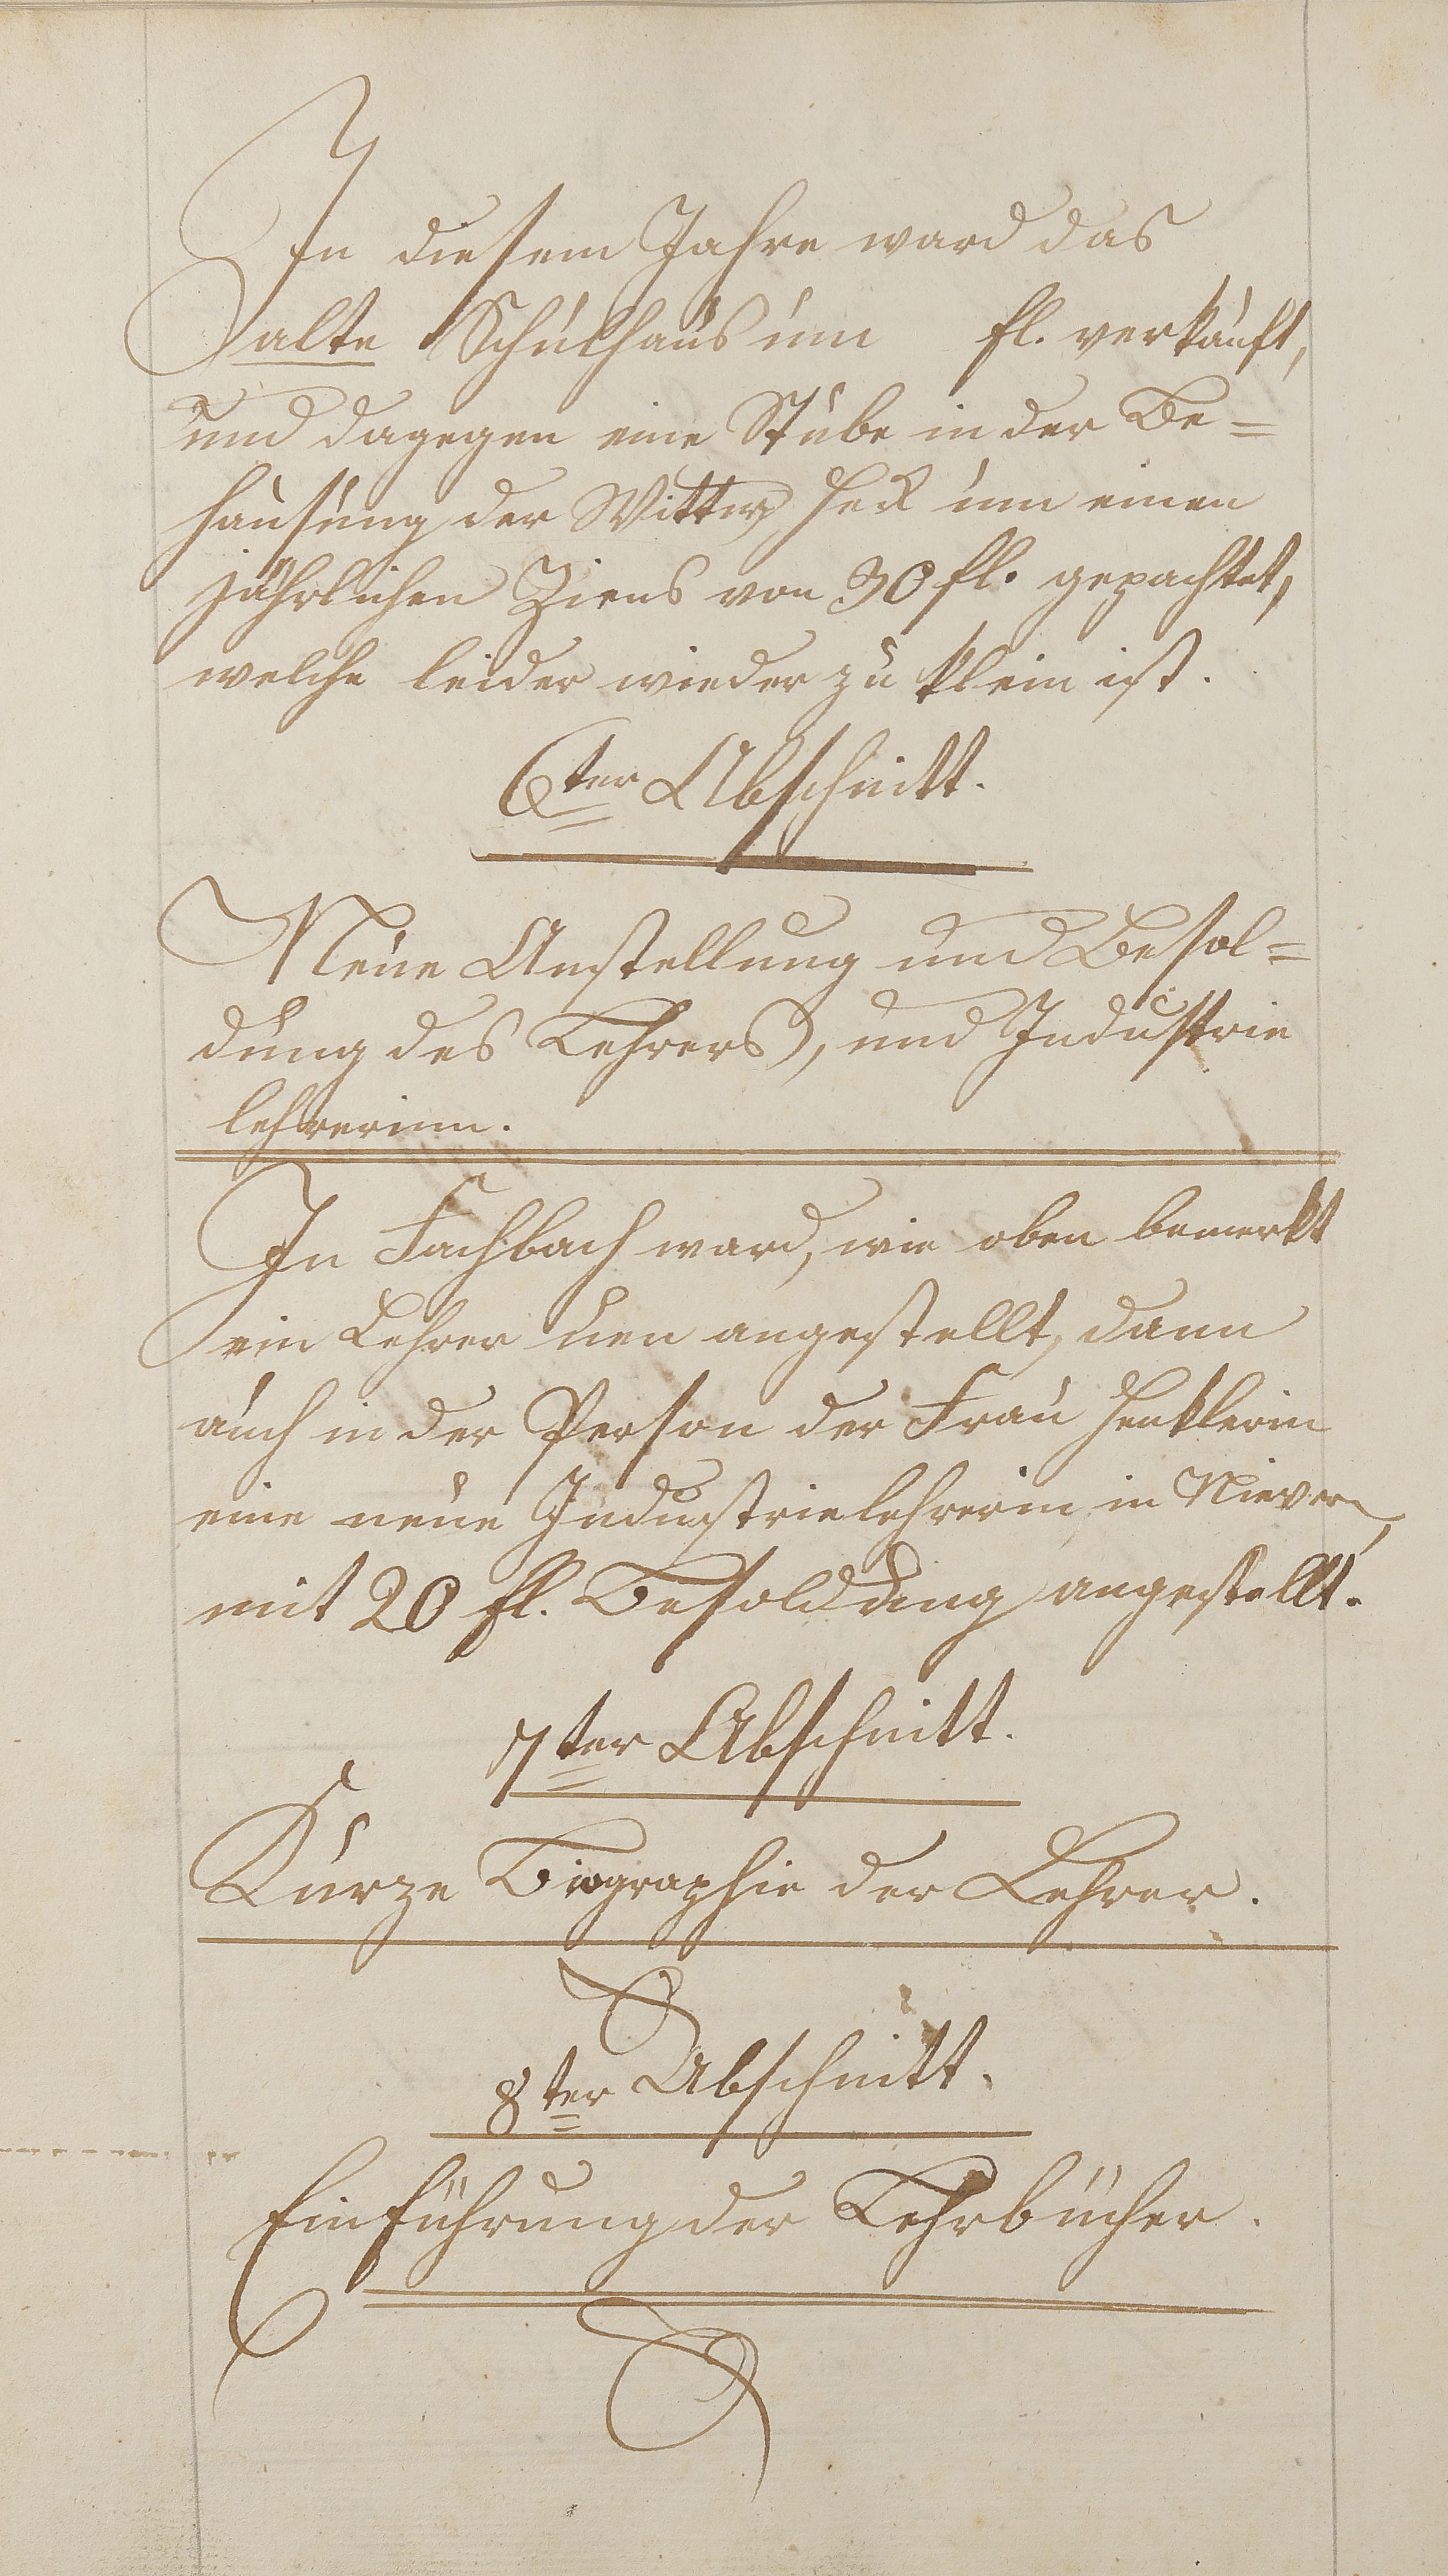 In diesem Jahre ward das
alte Schulhaus um fl. verkauft,
und dagegen eine Stube in der Be=
hausung der Wittw. Heck um einen
jährlichen Zins von 30 fl. gepachtet,
welche leider wieder zu klein ist.
6ter Abschnitt.
Neue Anstellung und Besol=
dung des Lehrers, und Industrie
lehrerinn.
In Fachbach ward, wie oben bemerkt
ein Lehrer neu angestellt, dann
auch in der Person der Frau
eine neue Industrielehrerin in Nievern,
mit 20 fl. Besoldung angestellt.
7ter Abschnitt.
Kurze Biographie der Lehrer.
8ter Abschnitt.
Einführung der Lehrbücher.